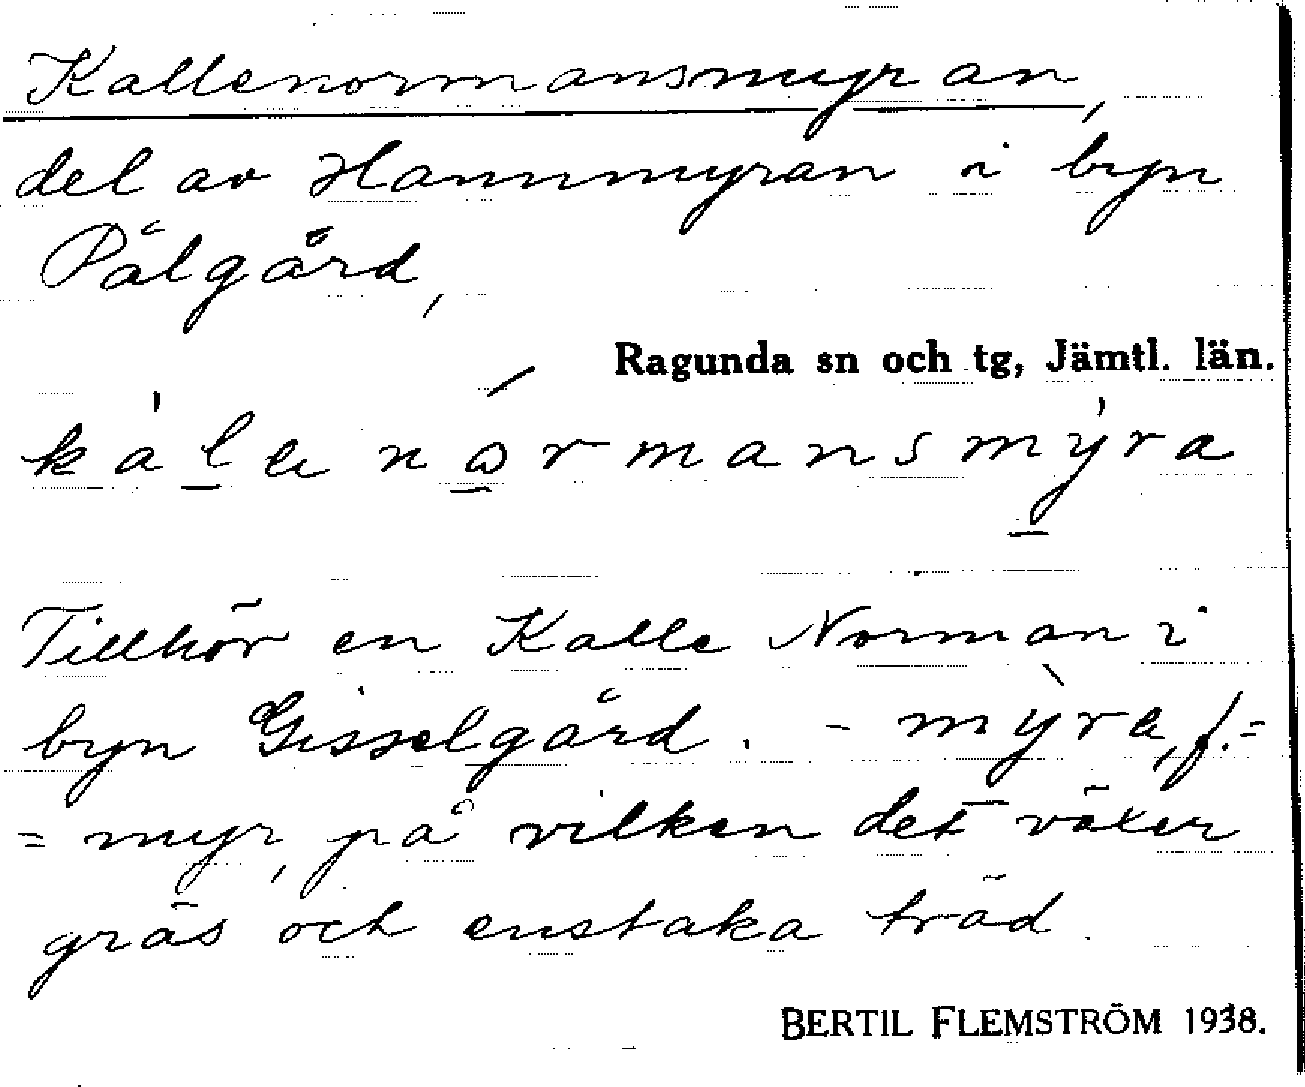 Kallenormansmyran,
del av Hammmyran i byn
Pålgård,
Ragunda sn och tg, Jämtl. län.
kalle normansmyra
Tillhör en Kalle Norman i
byn Gisselgård. - myra, f. =
= myr, på vilken det växer
gräs och enstaka träd.
BERTIL FLEMSTRÖM 1938.